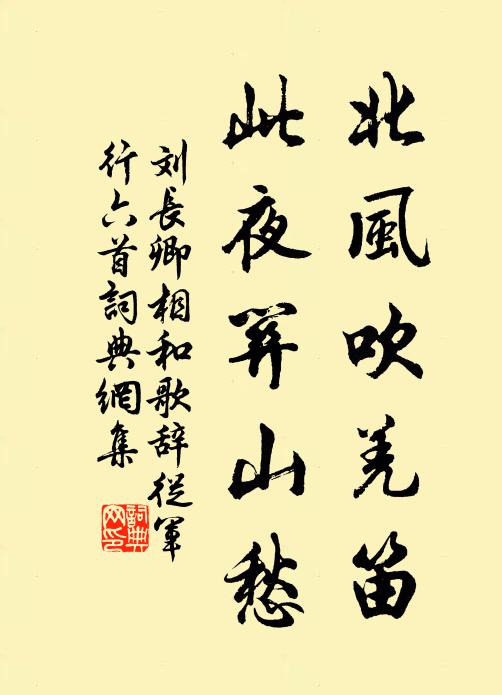 北風吹羌笛
此夜關山愁
刘長卿相和歌辞從軍
行六首詞典網集
詞典
网印